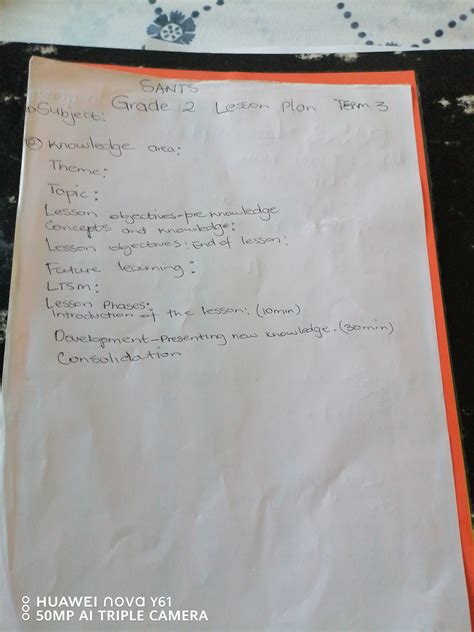 SANTS
Grade 2 Lesson Plan TERM 3
Subject:
Knowledge area:
Theme:
Topic:
Lesson objectives-pre knowledge
Concepts and knowledge:
Lesson objectives: End of lesson:
Future learning:
LTSM:
Lesson Phases:
Introduction of the lesson: (10min)
Development-Presenting new knowledge. (30min)
Consolidation
HUAWEI nova Y61
50MP AI TRIPLE CAMERA